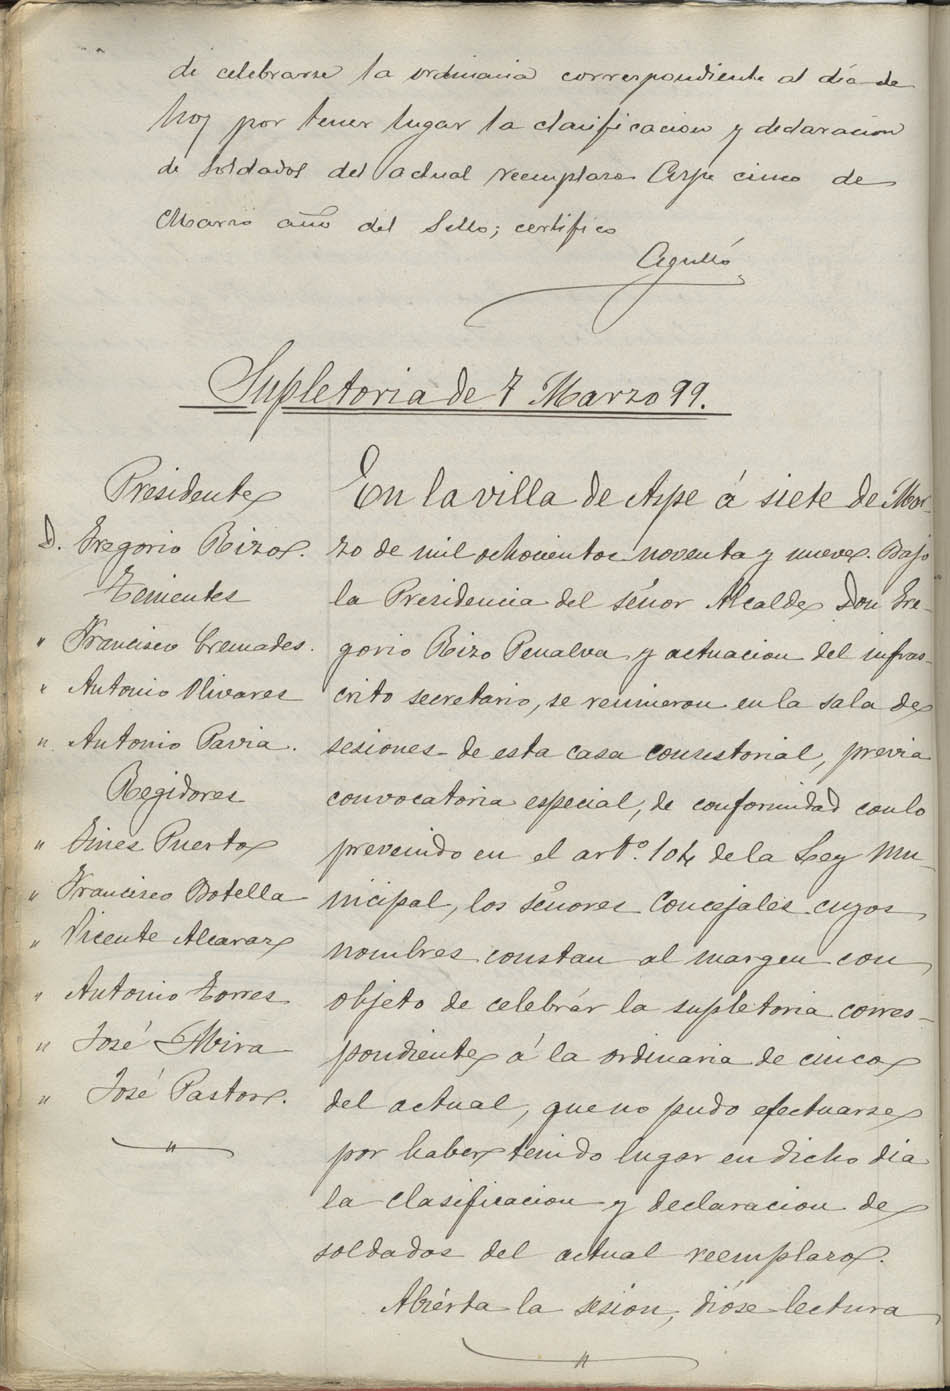 de celebrarse la ordinaria correspondiente al día de
hoy por tener lugar la clasificacion y declaracion
de soldados del actual reemplazo Aspe cinco de
Marzo año del Sello; certifico
Agulló
Supletoria de 7 Marzo 99.
Presidente
D. Gregorio Rizo.
Tenientes
" Francisco Cremades.
" Antonio Olivares
" Antonio Pavia.
Regidores
" Gines Puerto
" Francisco Botella
" Vicente Alcaraz
" Antonio Torres
" José Mira
" José Pastor.
"
En la villa de Aspe á siete de Mar-
zo de mil ochocientos noventa y nueve. Bajo
la Presidencia del señor Alcalde Don Gre-
gorio Rizo Penalva y actuacion del infras-
crito secretario, se reunieron en la sala de
sesiones de esta casa consistorial, previa
convocatoria especial, de conformidad con lo
prevenido en el artº. 104 de la Ley Mu-
nicipal, los señores Concejales cuyos
nombres constan al margen con
objeto de celebrár la supletoria corres-
pondiente á la ordinaria de cinco
del actual, que no pudo efectuarse
por haber tenido lugar en dicho dia
la clasificacion y declaracion de
soldados del actual reemplazo.
Abiérta la sesion, dióse lectura
"